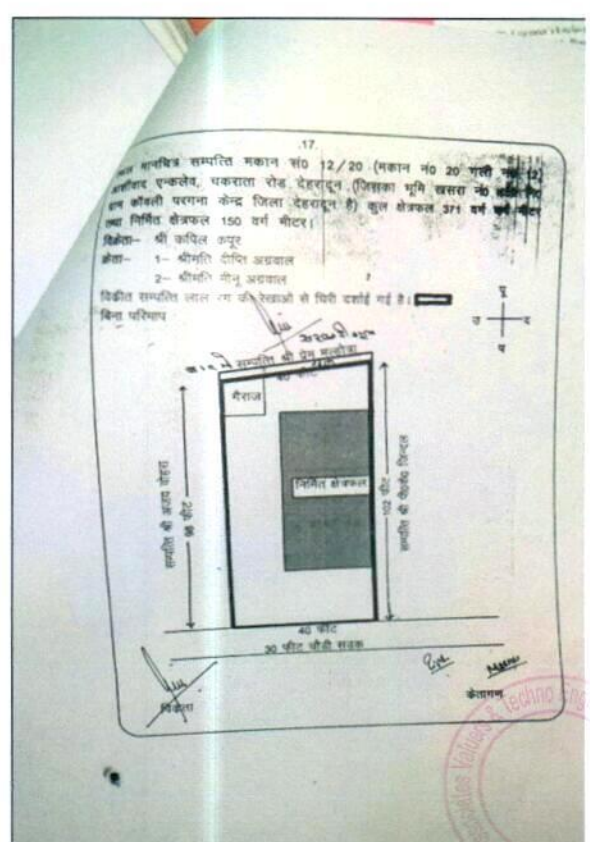 .17.
मानचित्र सम्पत्ति मकान सं0 12/20 (मकान नं0 20 गली नं0 12)
आर्शीवाद एन्कलेव, चकराता रोड देहरादून (जिसका भूमि खसरा नं0
कॉवली परगना केन्द्र जिला देहरादून है) कुल क्षेत्रफल 371 वर्ग मीटर
तथा निर्मित क्षेत्रफल 150 वर्ग मीटर।
विक्रेता– श्री कपिल कपूर
क्रेता– 1– श्रीमति दीप्ति अग्रवाल
2– श्रीमति मीनू अग्रवाल
विक्रीत सम्पत्ति लाल रंग की रेखाओं से घिरी दर्शाई गई है।
बिना परिमाप
पू
उ द
प
सम्पत्ति श्री प्रेम मल्होत्रा
40 फीट
गैराज
निर्मित क्षेत्रफल
सम्पत्ति श्री अजय वोहरा
98 फीट
102 फीट
सम्पत्ति श्री पी0के0 जिन्दल
40 फीट
30 फीट चौड़ी सडक
विक्रेता
क्रेतागण
Valuers & techno